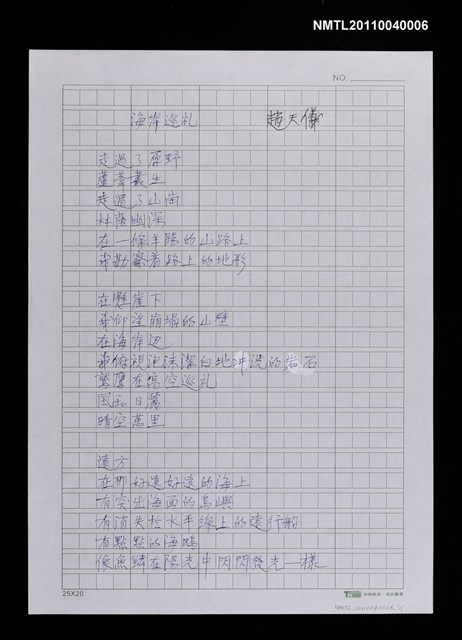 NMTL20110040006
NO.
海岸巡礼 趙天儀
走過了原野
蘆葦叢生
走過了山崗
林蔭幽深
在一條羊腸的山路上
我勘察着路上的地形
在懸崖下
我仰望崩塌的山壁
在海岸边
我俯視泡沫深白地沖洗的岩石
鷲鷹在高空巡礼
風和日麗
晴空萬里
遠方
在那好遠好遠的海上
有突出海面的島嶼
有消失於水平線上的遠行船
有點點的海鷗
像魚鱗在陽光中閃閃發光一樣
25X20
NMTL20110040006